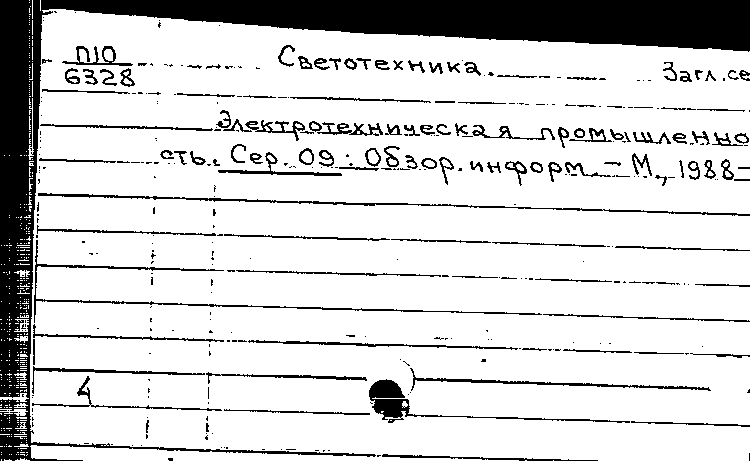 П10 Светотехника. Загл. се
6328
Электротехническая промышленно
сть. Сер. 09 : Обзор. информ. – М., 1988–
4